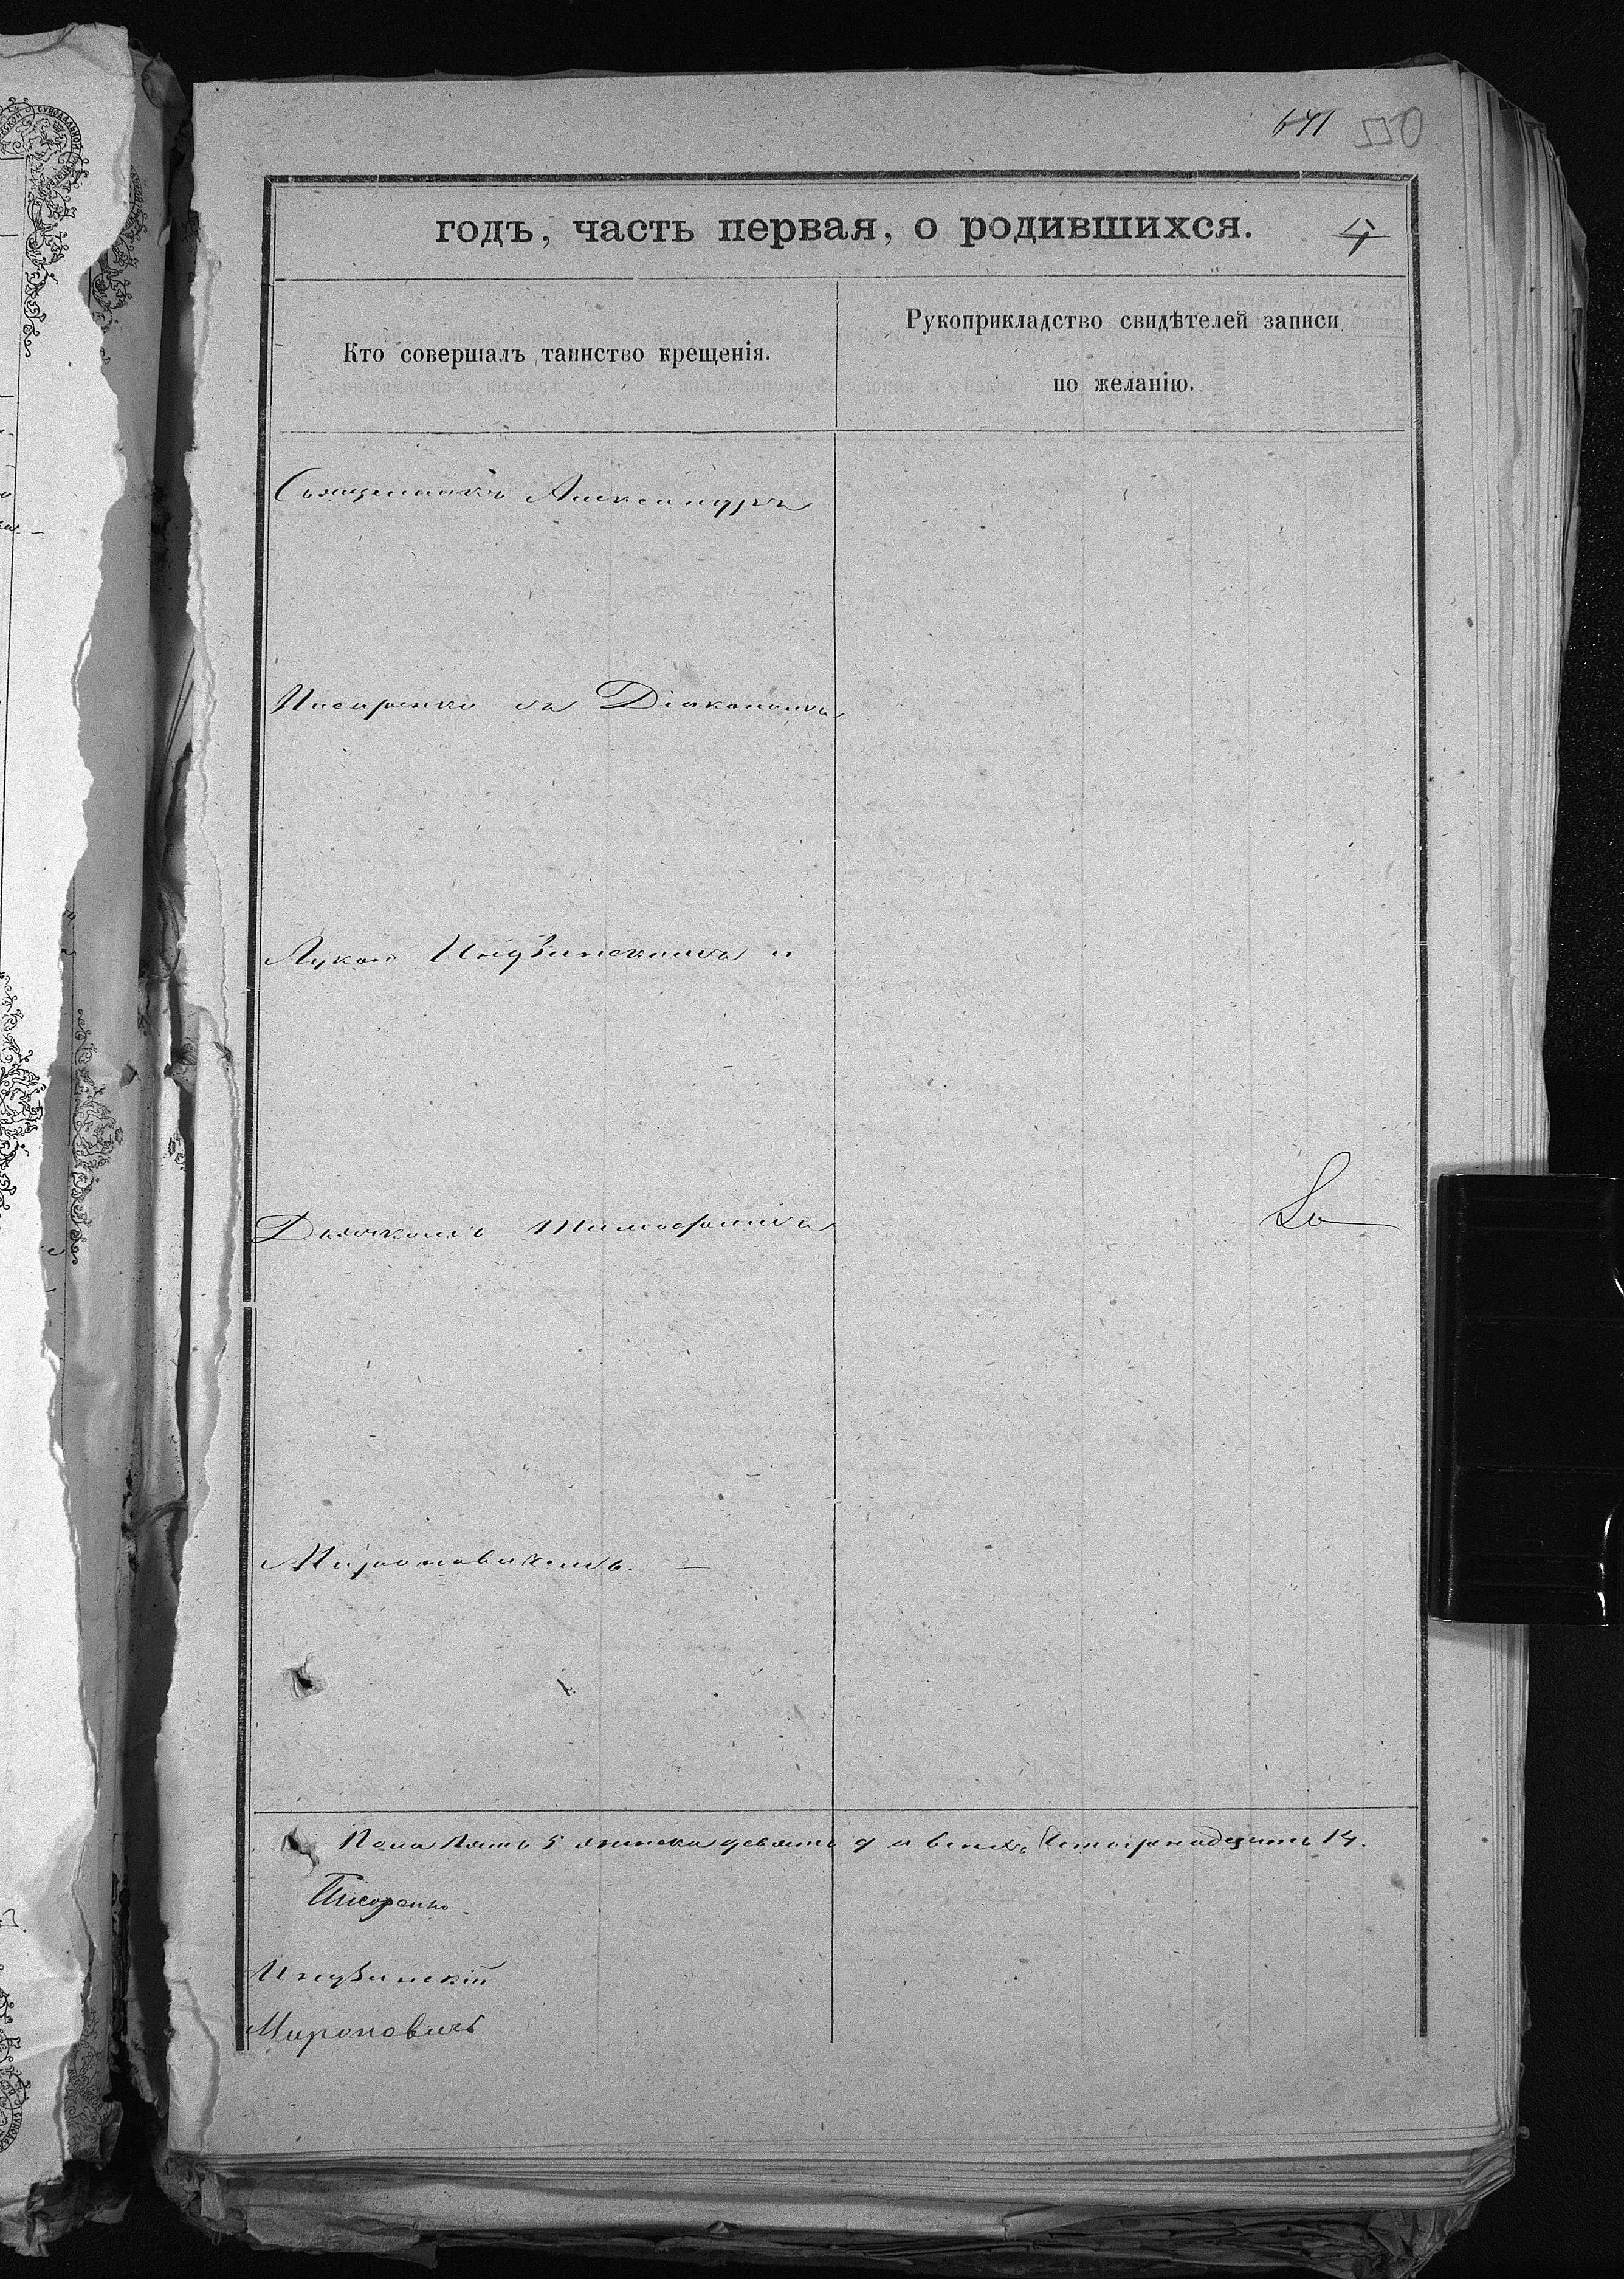 641 550
годъ, часть первая, о родившихся. 4
Кто совершалъ таинство крещенія.
Рукоприкладство свидѣтелей записи
по желанію.
Священникъ Александръ
Писаренко съ Діакономъ
Лукою Индзинскимъ и
Дьячкомъ Тимофеемъ
Мироновичемъ. —
Пола Пять 5 женска девять 9 и всехъ Четырнадцать 14.
Писаренко
Индзинскій
Мироновичъ